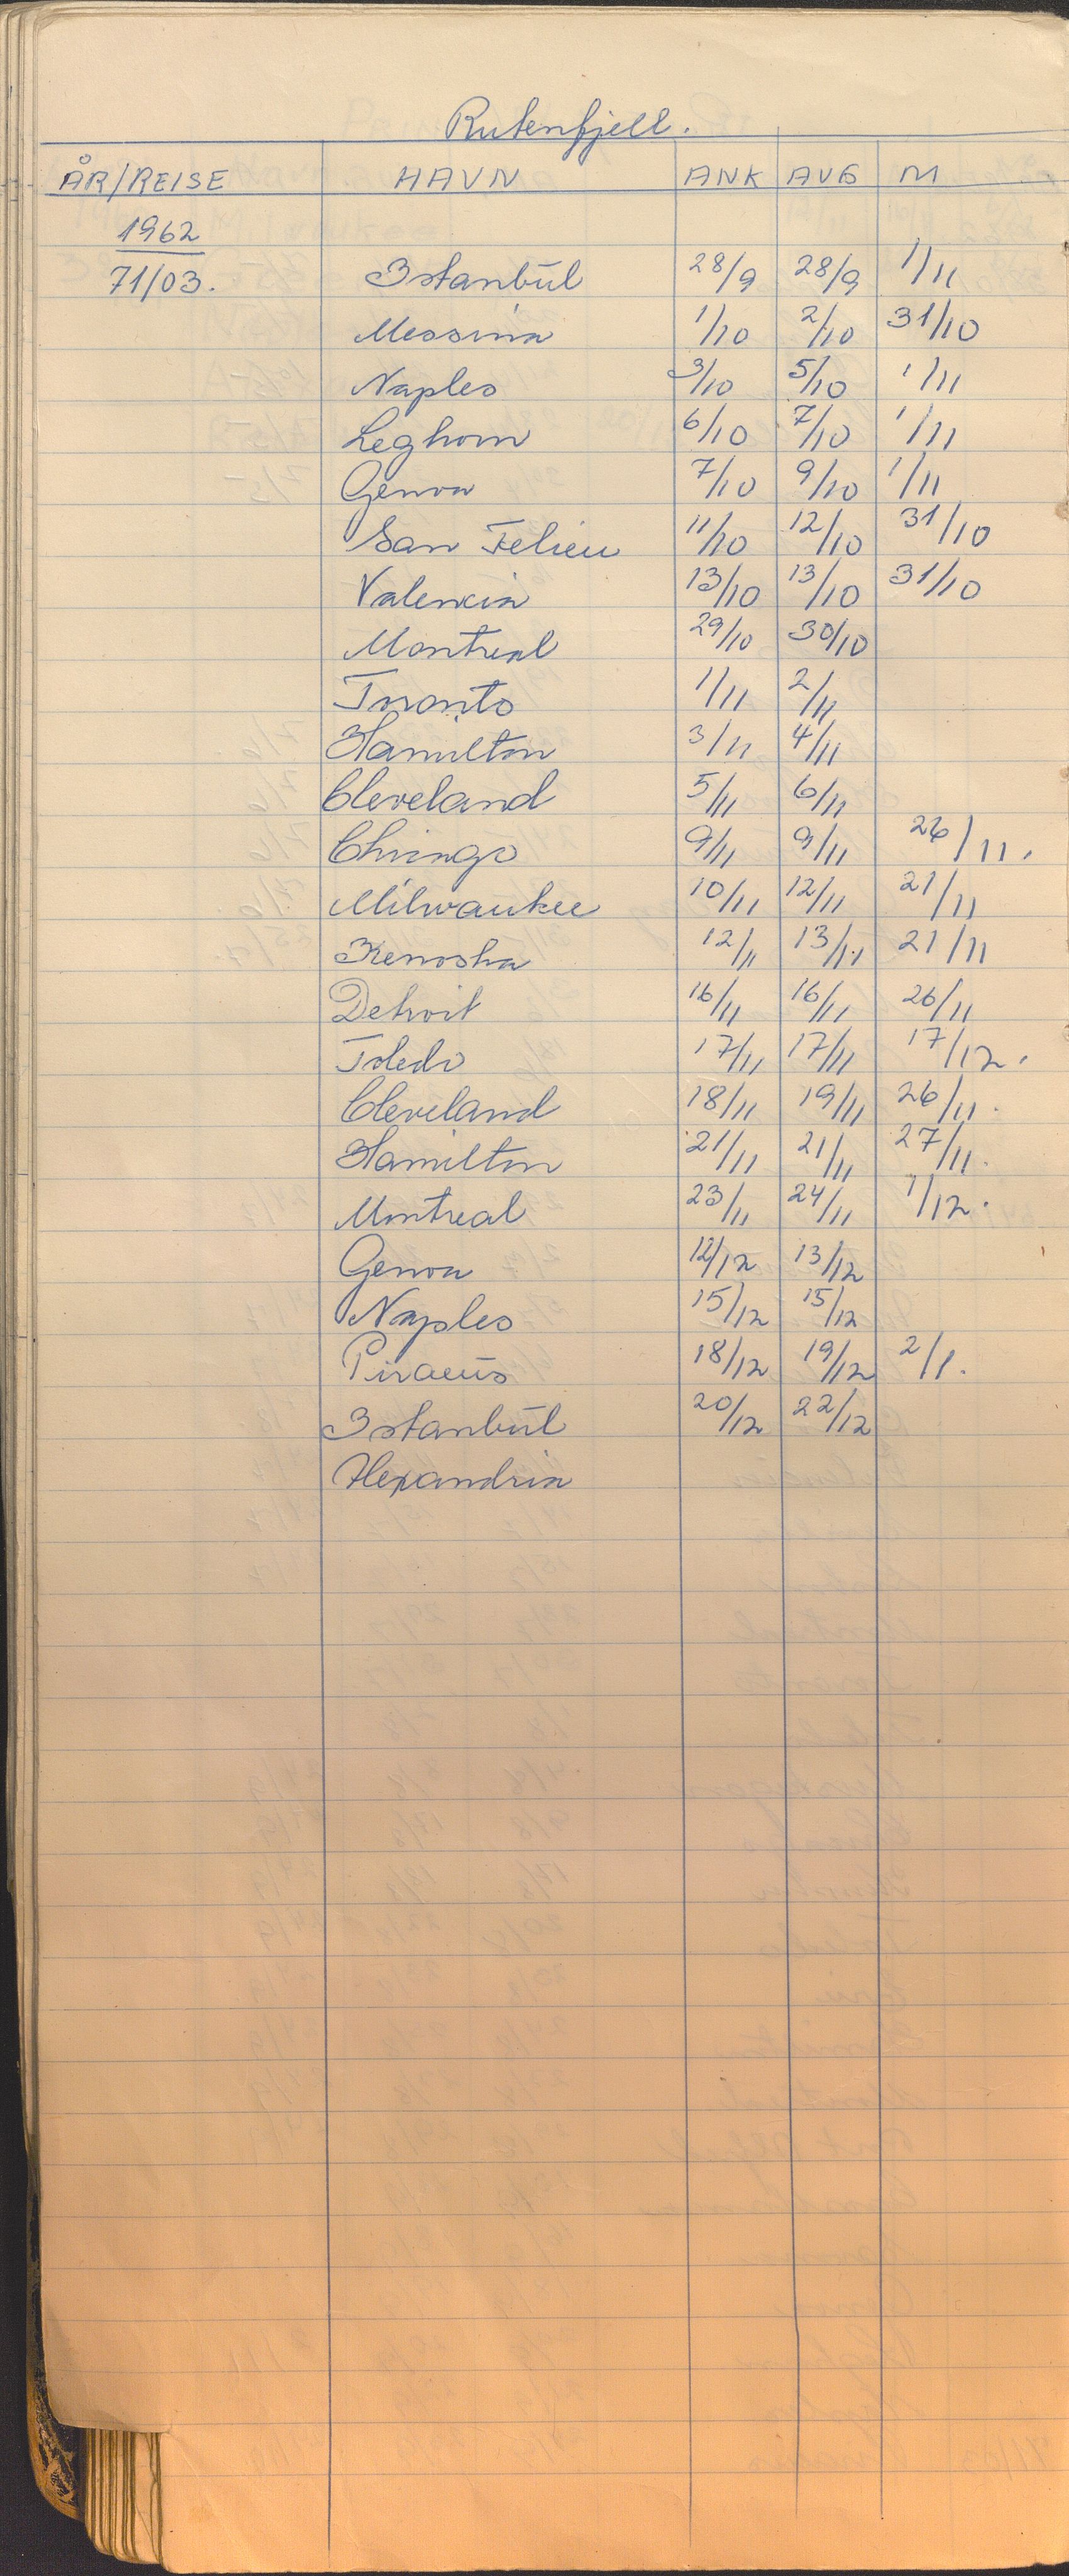 Rutenfjell.
ÅR/REISE HAVN ANK AVG M
1962
71/03. Istanbul 28/9 28/9 1/11
Messina 1/10 2/10 31/10
Naples 3/10 5/10 1/11
Leghorn 6/10 7/10 1/11
Genoa 7/10 9/10 1/11
San Felieu 11/10 12/10 31/10
Valencia 13/10 13/10 31/10
Montreal 29/10 30/10
Toronto 1/11 2/11
Hamilton 3/11 4/11
Cleveland 5/11 6/11
Chicago 9/11 9/11 26/11.
Milwaukee 10/11 12/11 21/11
Kenosha 12/11 13/11 21/11
Detroit 16/11 16/11 26/11
Toledo 17/11 17/11 17/12.
Cleveland 18/11 19/11 26/11.
Hamilton 21/11 21/11 27/11.
Montreal 23/11 24/11 1/12.
Genoa 12/12 13/12
Naples 15/12 15/12
Piraeus 18/12 19/12 2/1.
Istanbul 20/12 22/12
Alexandria